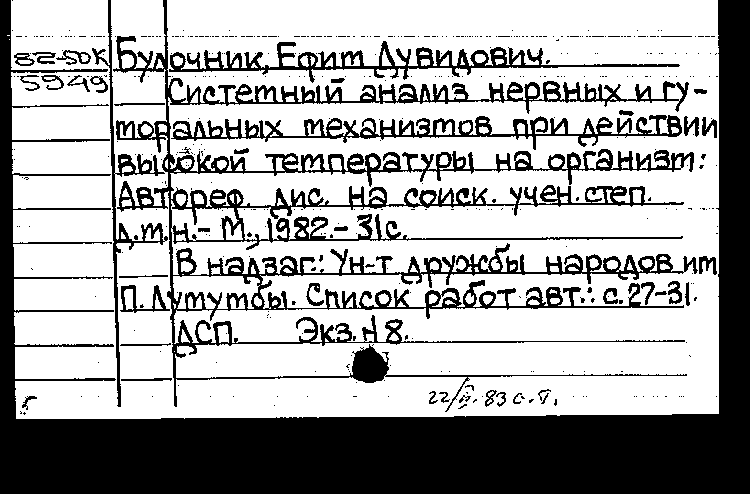 82-50К Булочник, Ефим Лувидович.
5949 Системный анализ нервных и гу-
моральных механизмов при действии
высокой температуры на организм:
Автореф. дис. на соиск. учен. степ.
д.м.н. - М., 1982. - 31с.
В надзаг.: Ун-т дружбы народов им
П. Лумумбы. Список работ авт.: с. 27-31.
ДСП. Экз. № 8.
83 с.